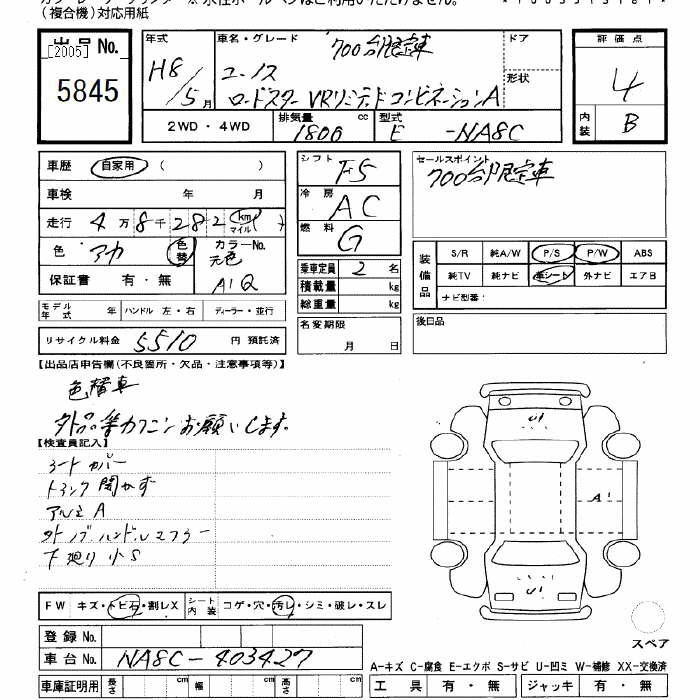 (複合機)対応用紙
出品No.
[2005]
5845
年式
H8/5月
車名・グレード
700台限定車
ユーノス
ロードスター VRリミテッドコンビネーションA
ドア
形状
2WD・4WD
排気量 1800 cc
型式 E -NA8C
評価点
4
内装 B
車歴 自家用 ( )
車検 年 月
走行 4万8千282km( )マイル
色 アカ 色替 カラーNo. 元色
保証書 有・無 A1Q
モデル年式 年 ハンドル 左・右 ディーラー・並行
リサイクル料金 5510 円 預託済
シフト F5
冷房 AC
燃料 G
乗車定員 2 名
積載量 kg
総重量 kg
名変期限
月 日
セールスポイント
700台限定車
装備品
S/R 純A/W P/S P/W ABS
純TV 純ナビ 革シート 外ナビ エアB
ナビ型番:
後日品
【出品店申告欄(不良箇所・欠品・注意事項等)】
色替車
外品等カクニンお願いします。
【検査員記入】
シートカバー
トランク開かず
アルミA
外ノブハンドルマフラー
下廻り小S
FW キズ・トビ石・割レX シート内装 コゲ・穴・汚レ・シミ・破レ・スレ
登録No.
車台No. NA8C-403427
車庫証明用 長さ cm 幅 cm 高さ cm
U1
A1
U1
スペア
A-キズ C-腐食 E-エクボ S-サビ U-凹ミ W-補修 XX-交換済
工具 有・無 ジャッキ 有・無